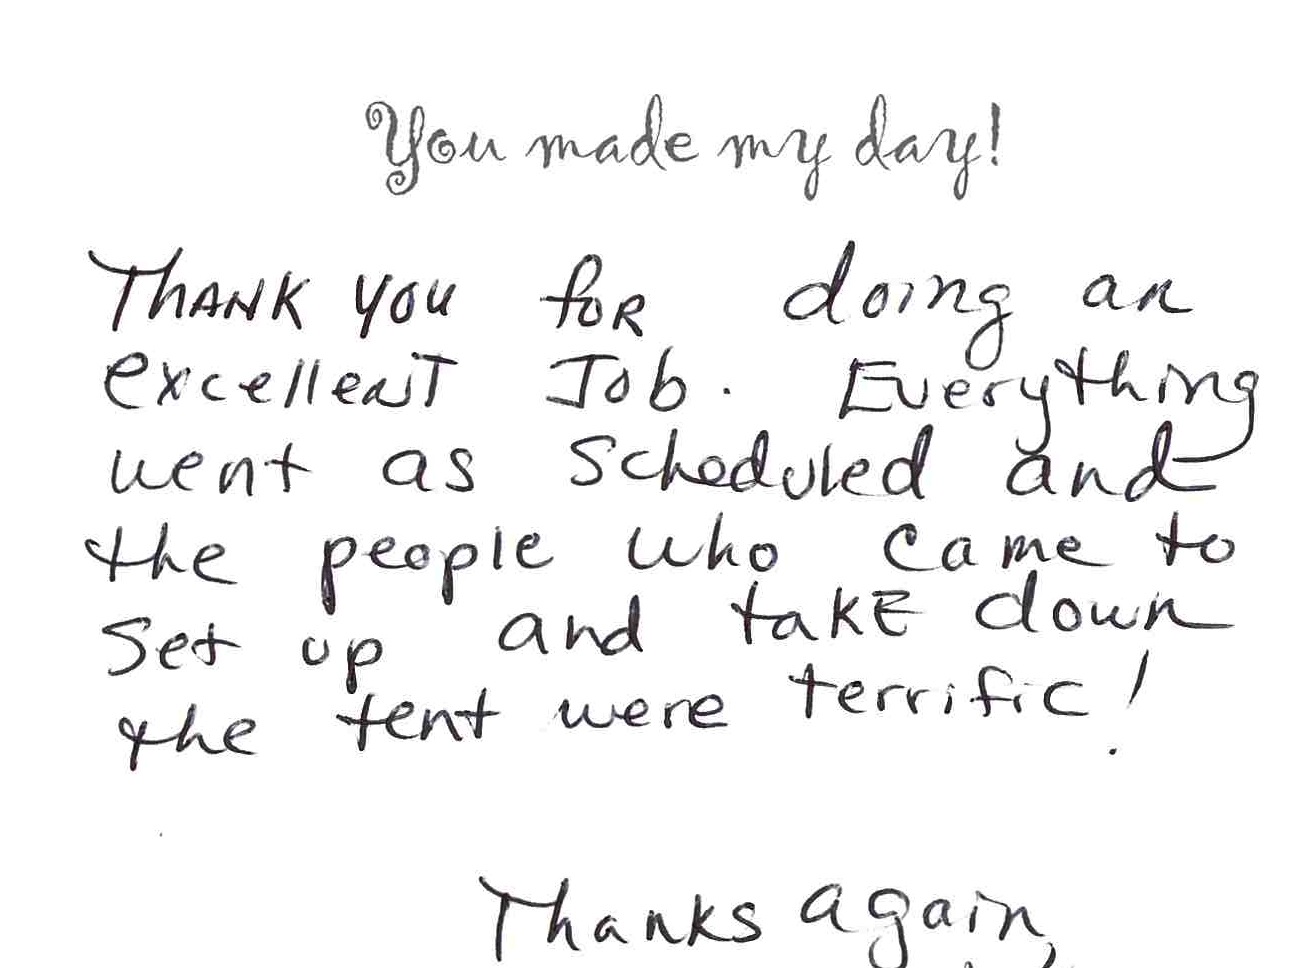 You made my day!
Thank you for doing an
excellent Job. Everything
went as scheduled and
the people who came to
set up and take down
the tent were terrific!
Thanks again,